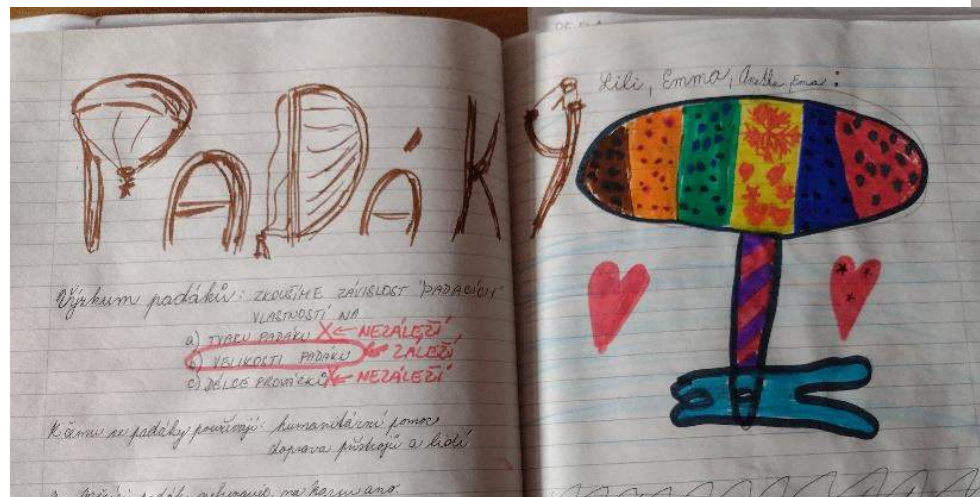 PADÁKY
Výzkum padáků: ZKOUŠÍME ZÁVISLOST "PADACÍCH"
VLASTNOSTÍ NA
a) TVARU PADÁKU X ← NEZÁLEŽÍ
b) VELIKOSTI PADÁKU ← ZÁLEŽÍ
c) DÉLCE PROVÁZKŮ X ← NEZÁLEŽÍ
K čemu se padáky používají: humanitární pomoc
doprava přístrojů a lidí
padáky nefungují, na kg
Lili, Emma, Anežka, Ema: